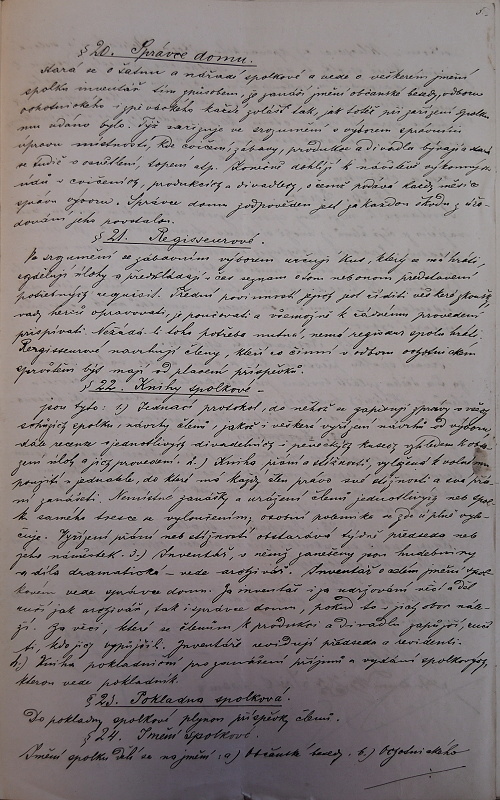 5.
§ 20. Správce domu.
Stará se o šatnu a nářadí spolkové a vede o veškerém jmění
spolku inventář tím způsobem, že zanáší jmění občanské besedy, odboru
ochotnického i pěveckého každé zvlášť tak, jak totéž při zařízení spolku
mu udáno bylo. Týž zařizuje ve srozumění s výborem správním
úpravu místnosti, kde cvičení, zábavy, produkce a divadla bývají a stará
se tudíž o osvětlení, topení atp. Konečně dohlíží k návštěvě výkonných
údů v cvičeních, produkcích a divadlech, o čemž podává každý měsíc
zprávu výboru. Správce domu zodpověden jest za každou škodu z
dování jeho povstalou.
§ 21. Regisseurové.
Po srozumění se zábavním výborem určují kus, který se má hráti,
rozdělují úlohy a předkládají v čas seznam osob nebo
potřebných requisit. Přední povinností jejich jest říditi veškeré zkoušky,
vady herců opravovati, je poučovati a všemožně k řádnému provedení
přispívati. Nežádá-li toho potřeba nutná, nemá regisseur spolu hráti.
Regisseurové navrhují členy, kteří co činní v odboru ochotnickém
sproštěni býti mají od placení příspěvků.
§ 22. Knihy spolkové –
jsou tyto: 1.) Jednací protokol, do něhož se zapisují zprávy o všech
schůzích spolku, návrhy členů, jakož i veškeré vyřízení návrhů od výboru,
dále recenze o jednotlivých divadelních i pěveckých kusech vzhledem k obsa-
zení úloh a jich provedení. 2.) Kniha přání a stížností, vyložená k volnému
použití u jednatele, do které má každý člen právo své stížnosti a svá přá-
ní zanášeti. Nemístné zanášky a urážení členů jednotlivých neb spol-
ku samého tresce se vyloučením; osobní polemika se zde úplně vylu-
čuje. Vyřízení přání neb stížností obstarává týdně předseda neb
jeho náměstek. 3.) Inventář, v němž zanešeny jsou hudebniny
a díla dramatická – vede archivář. Inventář o celém jmění spol-
kovém vede správce domu. Za inventář i za udržování věcí a děl
ručí jak archivář, tak i správce domu, pokud to v jich obor nále-
ží. Za věci, které se členům k produkci a divadlu zapůjčí, ručí
ti, kdo jich vypůjčil. Inventáře revidují předseda a revidenti.
4.) Kniha pokladniční pro zanášení příjmů a vydání spolkových,
kterou vede pokladník.
§ 23. Pokladna spolková.
Do pokladny spolkové plynou příspěvky členů.
§ 24. Jmění spolkové.
Jmění spolku dělí se na jmění: a.) Občanské besedy. b.) Ochotnického